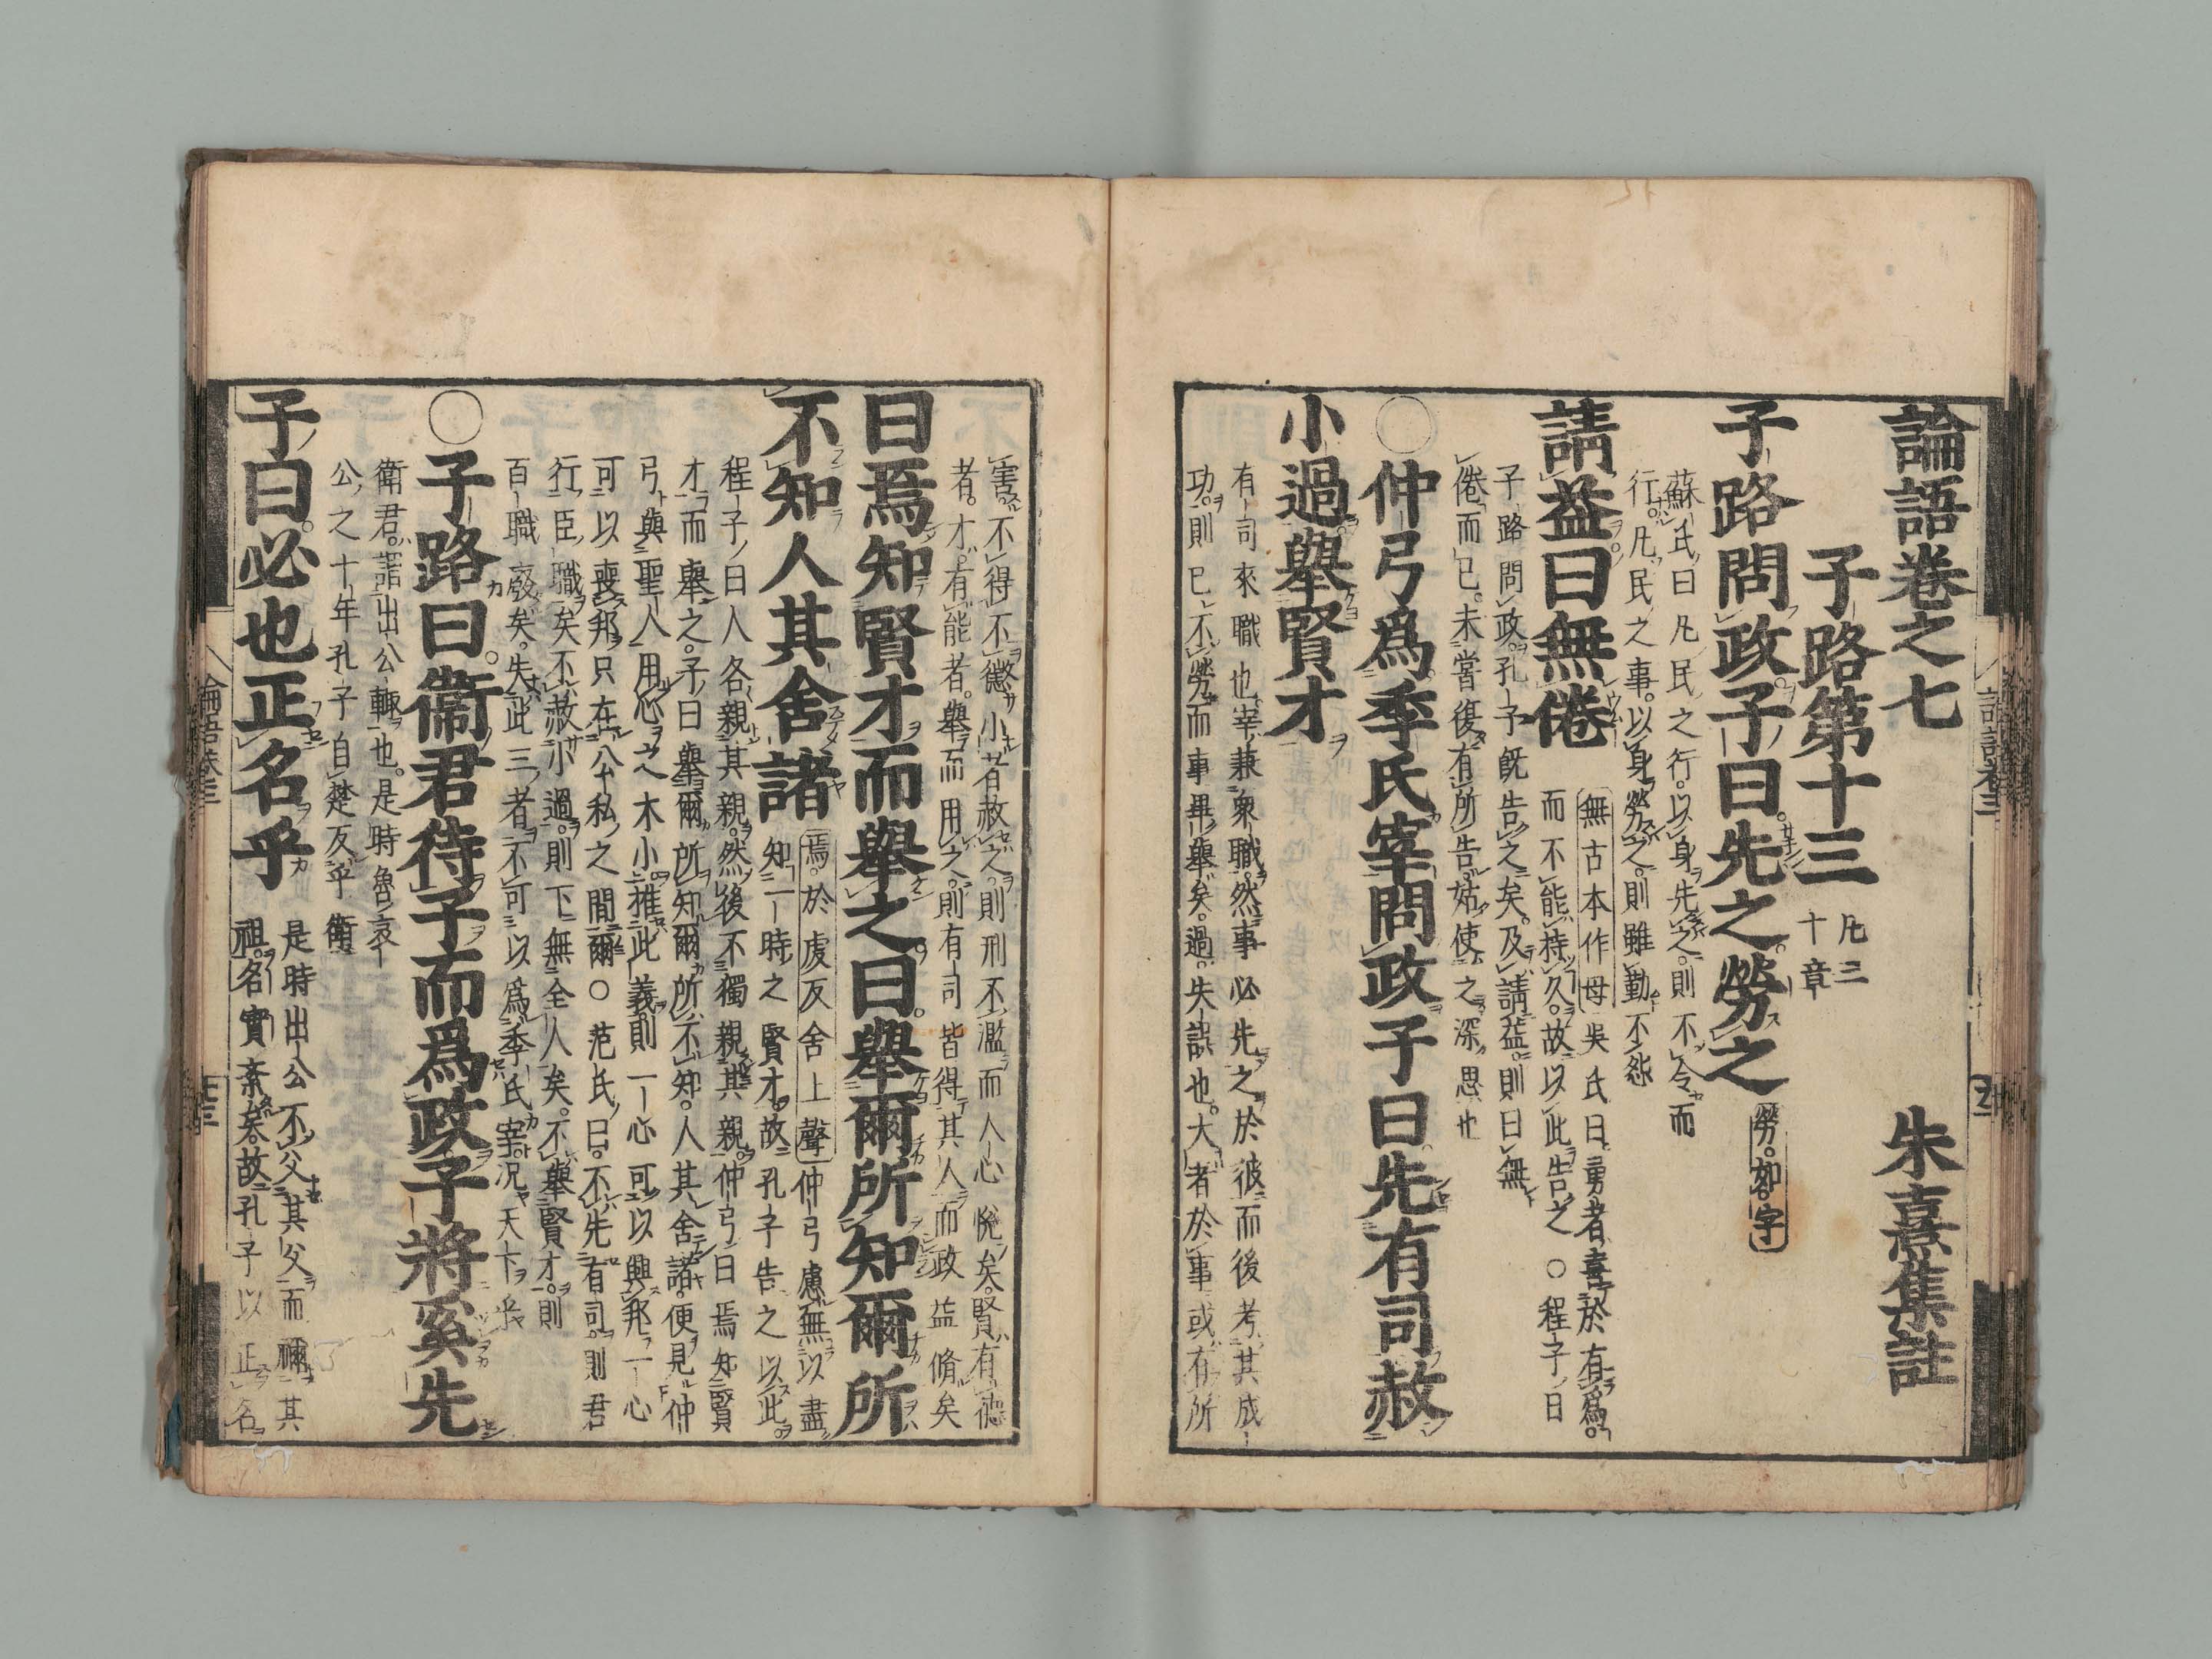 論語卷之七 朱熹集註
子路第十三 凡三
十章
子路問政子曰先之勞之 勞如字
蘇氏曰凡民之行以身先之則不令而
行凡民之事以身勞之則雖勤不怨
請益曰無倦 無古本作毋 吳氏曰勇者喜於有爲
而不能持久故以此告之○程子曰
子路問政孔子既告之矣及請益則曰無
倦而已未嘗復有所告姑使之深思也
○仲弓爲季氏宰問政子曰先有司赦
小過舉賢才
有司衆職也宰兼衆職然事必先之於彼而後考其成
功則己不勞而事畢舉矣過失誤也大者於事或有所
害不得不懲小者赦之則刑不濫而人心悅矣賢有德
者才有能者舉而用之則有司皆得其人而政益脩矣
曰焉知賢才而舉之曰舉爾所知爾所
不知人其舍諸 焉於虔反舍上聲 仲弓慮無以盡
知一時之賢才故孔子告之以此
程子曰人各親其親然後不獨親其親仲弓曰焉知賢
才而舉之子曰舉爾所知爾所不知人其舍諸便見仲
弓與聖人用心之大小推此義則一心可以興邦一心
可以喪邦只在公私之間爾○范氏曰不先有司則君
行臣職矣不赦小過則下無全人矣不舉賢才則
百職廢矣失此三者不可以爲季氏宰况天下乎
○子路曰衞君待子而爲政子將奚先
衛君謂出公輒也是時魯哀
公之十年孔子自楚反乎衛
子曰必也正名乎 是時出公不父其父而禰其
祖名實紊矣故孔子以正名